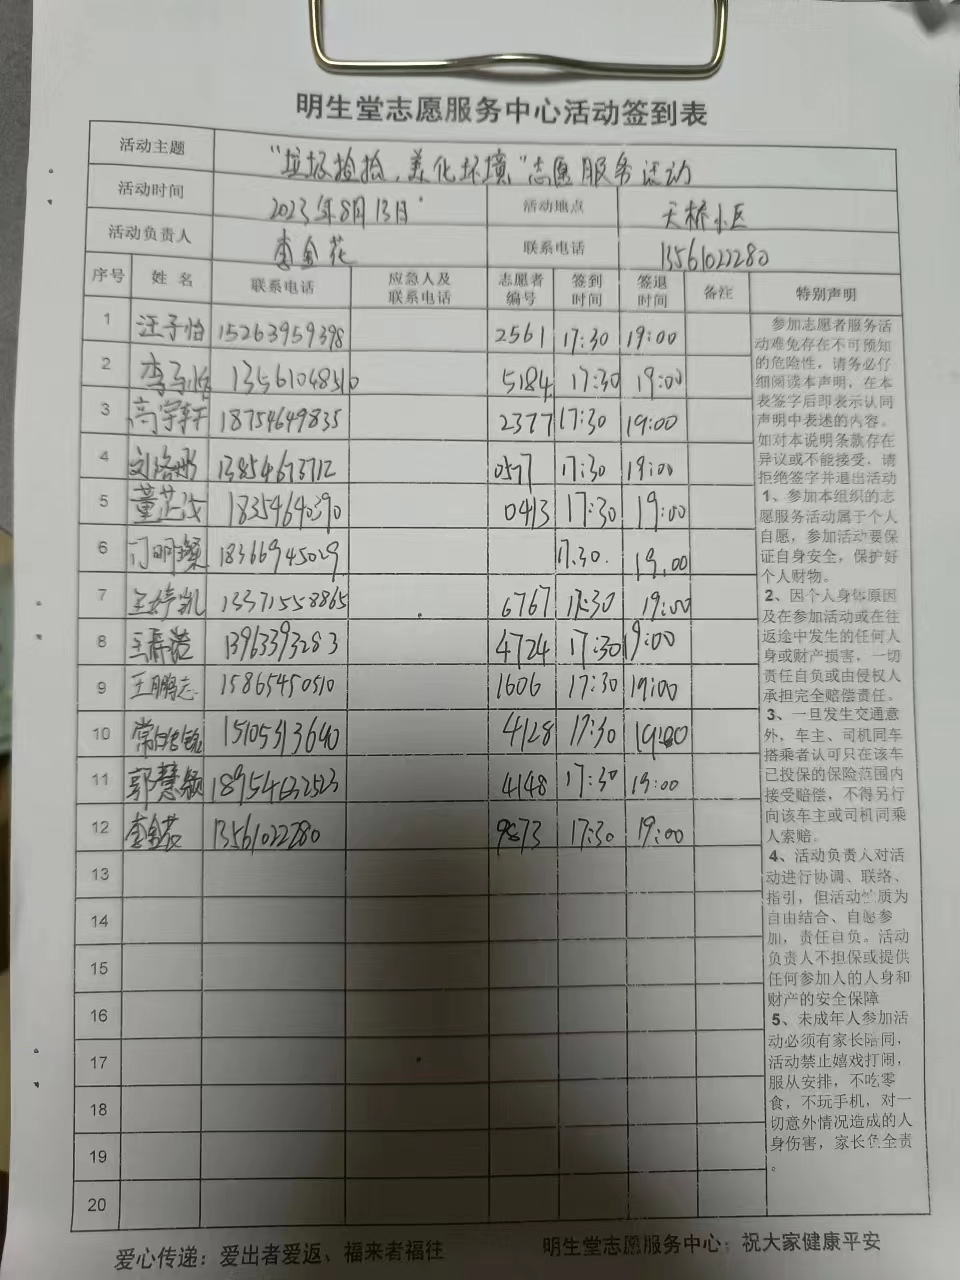 明生堂志愿服务中心活动签到表
活动主题 "垃圾捡拾,美化环境"志愿服务活动
活动时间 2023年8月13日 活动地点 天桥小区
活动负责人 李金花 联系电话 13561022280
序号 姓名 联系电话 应急人及联系电话 志愿者编号 签到时间 签退时间 备注 特别声明
1 汪子怡 15263959398 2561 17:30 19:00
2 13561048310 5184 17:30 19:00
3 高宇轩 18754649835 2377 17:30 19:00
4 刘洛彤 13854673712 0577 17:30 19:00
5 董芷汝 18354640390 0413 17:30 19:00
6 18366945029 17:30 19:00
7 13371558865 6767 17:30 19:00
8 13963393283 4724 17:30 19:00
9 王鹏志 15865450510 1606 17:30 19:00
10 15105313640 4128 17:30 19:00
11 郭慧颖 18954632523 4148 17:30 19:00
12 李金花 13561022280 9873 17:30 19:00
13
14
15
16
17
18
19
20
参加志愿者服务活
动难免存在不可预知
的危险性,请务必仔
细阅读本声明,在本
表签字后即表示认同
声明中表述的内容。
如对本说明条款存在
异议或不能接受,请
拒绝签字并退出活动
1、参加本组织的志
愿服务活动属于个人
自愿,参加活动要保
证自身安全,保护好
个人财物。
2、因个人身体原因
及在参加活动或在往
返途中发生的任何人
身或财产损害,一切
责任自负或由侵权人
承担完全赔偿责任。
3、一旦发生交通意
外,车主、司机同车
搭乘者认可只在该车
已投保的保险范围内
接受赔偿,不得另行
向该车主或司机同乘
人索赔。
4、活动负责人对活
动进行协调、联络、
指引,但活动性质为
自由结合、自愿参
加,责任自负。活动
负责人不担保或提供
任何参加人的人身和
财产的安全保障
5、未成年人参加活
动必须有家长陪同,
活动禁止嬉戏打闹,
服从安排,不吃零
食,不玩手机,对一
切意外情况造成的人
身伤害,家长负全责
。
爱心传递:爱出者爱返、福来者福往 明生堂志愿服务中心:祝大家健康平安